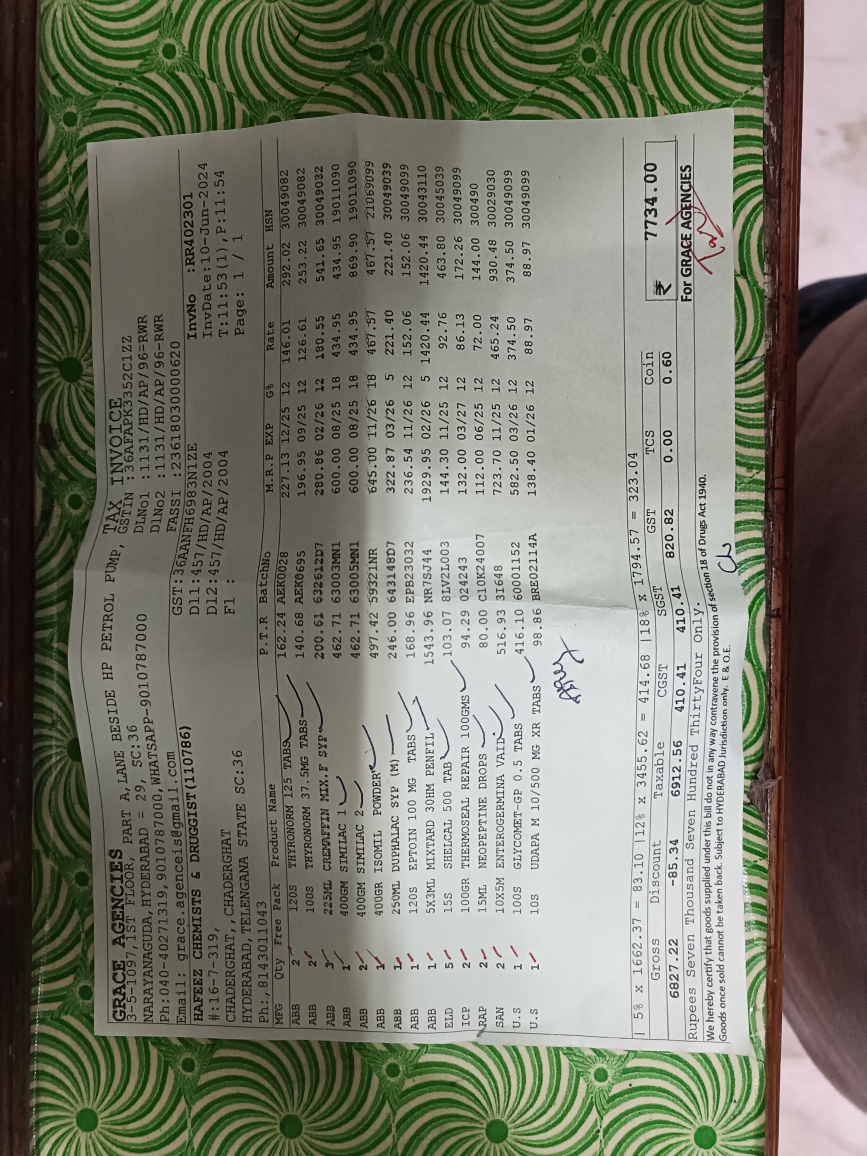 GRACE AGENCIES
TAX INVOICE
3-5-1097,1ST FLOOR, PART A,LANE BESIDE HP PETROL PUMP,
GSTIN :36AFAPK3352C1ZZ
NARAYANAGUDA,HYDERABAD = 29, SC:36
DLNo1 :1131/HD/AP/96=RWR
Ph:040-40271319,9010787000,WHATSAPP-9010787000
DlNo2 :1131/HD/AP/96-RWR
Email: grace.agenceis@gmail.com
FASSI :23618030000620
HAFEEZ CHEMISTS & DRUGGIST(110786)
GST:36AANFH6983N1ZE
InvNo :RR402301
#:16-7-319,
Dl1:457/HD/AP/2004
InvDate:10-Jun-2024
CHADERGHAT,,CHADERGHAT
Dl2:457/HD/AP/2004
T:11:53(1),P:11:54
HYDERABAD,TELENGANA STATE SC:36
Fl :
Page: 1 / 1
Ph:,8143011043
MFG Qty Free Pack Product Name P.T.R BatchNo M.R.P EXP G% Rate Amount HSN
ABB 2 120S THYRONORM 125 TABS 162.24 AEK0028 227.13 12/25 12 146.01 292.02 30049082
ABB 2 100S THYRONORM 37.5MG TABS 140.68 AEK0695 196.95 09/25 12 126.61 253.22 30049082
ABB 3 225ML CREMAFFIN MIX.F SYP 200.61 632612D7 280.86 02/26 12 180.55 541.65 30049032
ABB 1 400GM SIMILAC 1 462.71 63003MN1 600.00 08/25 18 434.95 434.95 19011090
ABB 2 400GM SIMILAC 2 462.71 63005MN1 600.00 08/25 18 434.95 869.90 19011090
ABB 1 400GR ISOMIL POWDER 497.42 59321NR 645.00 11/26 18 467.57 467.57 21069099
ABB 1 250ML DUPHALAC SYP (M) 246.00 643148D7 322.87 03/26 5 221.40 221.40 30049039
ABB 1 120S EPTOIN 100 MG TABS 168.96 EPB23032 236.54 11/26 12 152.06 152.06 30049099
ABB 1 5X3ML MIXTARD 30HM PENFIL 1543.96 NR7SJ44 1929.95 02/26 5 1420.44 1420.44 30043110
ELD 5 15S SHELCAL 500 TAB 103.07 8LV2L003 144.30 11/25 12 92.76 463.80 30045039
ICP 2 100GR THERMOSEAL REPAIR 100GMS 94.29 024243 132.00 03/27 12 86.13 172.26 30049099
RAP 2 15ML NEOPEPTINE DROPS 80.00 C10K24007 112.00 06/25 12 72.00 144.00 300490
SAN 2 10X5M ENTEROGERMINA VAID 516.93 3I648 723.70 11/25 12 465.24 930.48 30029030
U.S 1 100S GLYCOMET-GP 0.5 TABS 416.10 60001152 582.50 03/26 12 374.50 374.50 30049099
U.S 1 10S UDAPA M 10/500 MG XR TABS 98.86 BRE02114A 138.40 01/26 12 88.97 88.97 30049099
| 5% x 1662.37 = 83.10 |12% x 3455.62 = 414.68 |18% x 1794.57 = 323.04
Gross Discount Taxable CGST SGST GST TCS Coin
6827.22 -85.34 6912.56 410.41 410.41 820.82 0.00 0.60
₹ 7734.00
Rupees Seven Thousand Seven Hundred ThirtyFour Only.
For GRACE AGENCIES
We hereby certify that goods supplied under this bill do not in any way contravene the provision of section 18 of Drugs Act 1940.
Goods once sold cannot be taken back. Subject to HYDERABAD Jurisdiction only. E & O.E.